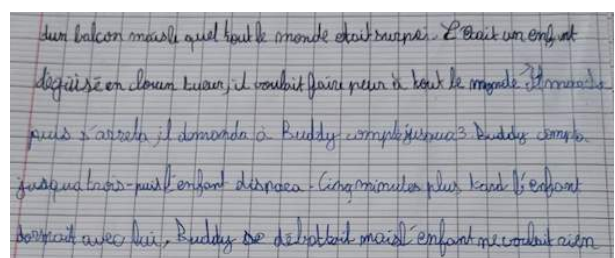 dun balcon mais quel tout le monde etait surpri. C'était un enfant
déguisé en clown tueur, il voulait faire peur à tout le monde Il
puis s'arreta, il domanda à Buddy compte jusqua 3 Buddy compta
jusqua trois - puis l'enfant disparea. Cinq minutes plus tard l'enfant
avec lui, Buddy se débattait mais l'enfant ne voulait rien